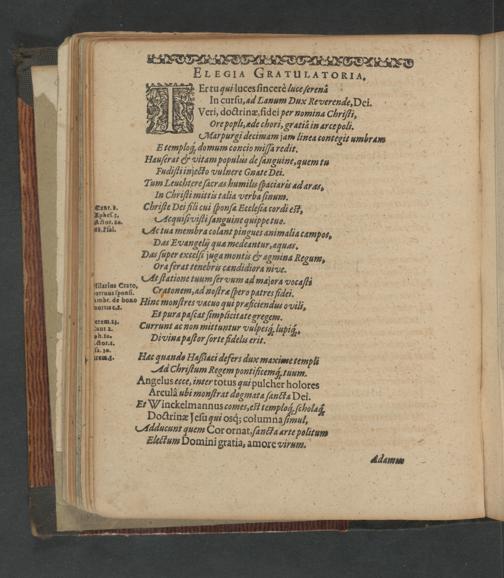 ELEGIA GRATULATORIA,
TErtu qui luces sincerè luce serenâ
In cursu, ad Lanum Dux Reverende, Dei.
Veri, doctrinæ, fidei per nomina Christi,
Ore popli, æde chori, gratiâ in arce poli.
Marpurgi decimam jam linea contegit umbram
E temploq́, domum concio missa redit.
Hauserat & vitam populus de sanguine, quem tu
Fudisti injecto vulnere Gnate Dei.
Tum Leuchtere sacras humilis spaciaris ad aras,
In Christi mittis talia verba sinum.
Christe Dei fili cui sponsa Ecclesia cordi est,
Acquisivisti sanguine quippe tuo.
Ac tua membra colant pingues animalia campos,
Das Evangelij qua medeantur, aquas.
Das super excelsi juga montis & agmina Regum,
Ora ferat tenebris candidiora nive.
At statione tuum servum ad majora vocasti
Cratonem, ad nostræ spero patres fidei.
Hinc monstres vacuo qui præficiendus ovili,
Et pura pascat simplicitate gregem.
Currunt ac non mittuntur vulpesq́, lupiq́,
Divina pastor sorte fidelis erit.
Hac quando Hassiaci defers dux maxime templi
Ad Christum Regem pontificemq́, tuum.
Angelus ecce, inter totus qui pulcher holores
Arculâ ubi monstrat dogmata sancta Dei.
Et Winckelmannus comes, est temploq́, scholaq́,
Doctrinæ Jesu qui osq́; columna simul,
Adducunt quem Cor ornat, sancta arte politum
Electum Domini gratia, amore virum.
Adamus
Cant. 2.
Ephes. 5.
Actor. 20.
Psal.
Hilarius Crato,
sponsi.
Ambr. de bono
mortis c.